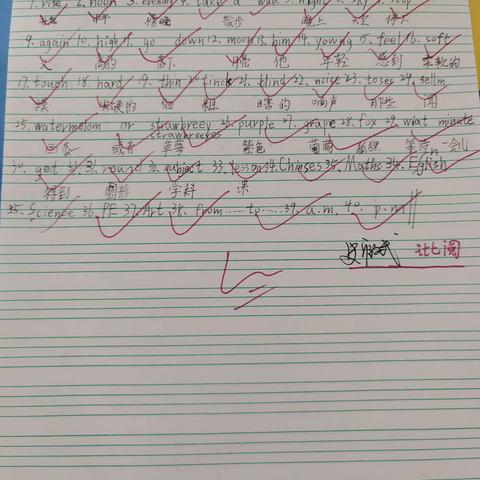 1. rise 2. noon 3. evening 4. take a walk 5. night 6. sky 7. stop
升起 中午 傍晚 散步 晚上 天空 停下
9. again 10. high 11. go down 12. moon 13. him 14. young 15. feel 16. soft
又 高的 落下 月亮 他 年轻 感到 柔软的
17. touch 18. hard 19. thin 20. thick 21. blind 22. noise 23. toses 24. sellm
摸 坚硬的 细 粗 瞎的 响声 那些 闻
25. watermelom or strawbreey 26. purple 27. grape 28. fox 29. wiat minute
strawbreeyes
西瓜 或者 草莓 紫色 葡萄 狐狸 等一会儿
30. get 31. round 32. subject 33. lesson 34. Chinses 35. Maths 34. English
得到 圆形 学科 课
35. Science 36. PE 37. Art 38. from……to……39. a.m. 40. p.m
批阅